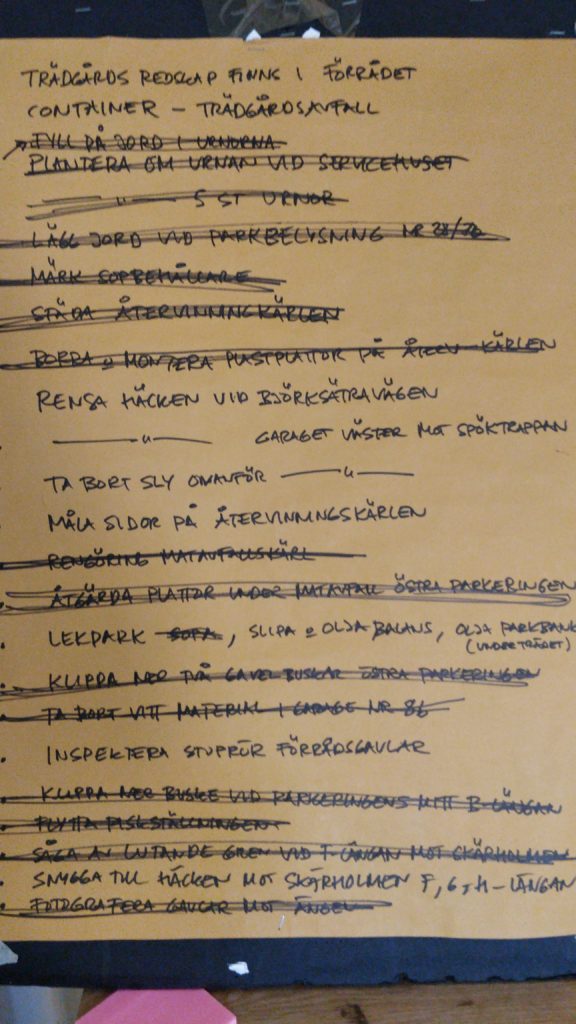 TRÄDGÅRDS REDSKAP FINNS I FÖRRÅDET
CONTAINER – TRÄDGÅRDSAVFALL
FYLL PÅ JORD I URNORNA
PLANTERA OM URNAN VID SERVICEHUSET
—— " —— 5 ST URNOR
LÄGG JORD VID PARKBELYSNING NR 28/76
MÄRK SOPBEHÅLLARE
STÄDA ÅTERVINNINGKÄRLEN
BORRA o MONTERA PLASTPLATTOR PÅ ÅTERV-KÄRLEN
RENSA HÄCKEN VID BJÖRKSÄTRAVÄGEN
—— " —— GARAGET VÄSTER MOT SPÖKTRAPPAN
TA BORT SLY OVANFÖR —— " ——
MÅLA SIDOR PÅ ÅTERVINNINGSKÄRLEN
RENGÖRING MATAVFALLSKÄRL
ÅTGÄRDA PLATTOR UNDER MATAVFALL ÖSTRA PARKERINGEN
LEKPARK SOFA, SLIPA o OLJA BALANS, OLJA PARKBANK
(UNDER TRÄDET)
KLIPPA NER TVÅ GAVELBUSKAR ÖSTRA PARKERINGEN
TA BORT VITT MATERIAL I GARAGE NR 86
INSPEKTERA STUPRÖR FÖRRÅDSGAVLAR
KLIPPA NER BUSKE VID PARKERINGENS MITT B-LÄNGAN
FLYTTA PISKSTÄLLNINGEN
SÅGA AV LUTANDE GREN VID F-LÄNGAN MOT SKÄRHOLMEN
SNYGGA TILL HÄCKEN MOT SKÄRHOLMEN F, G, H-LÄNGAN
FOTOGRAFERA GAVLAR MOT ÄNGEN